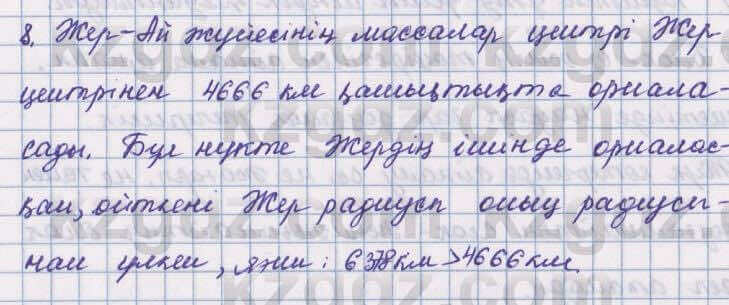 8. Жер-Ай жүйесінің массалар центрі Жер
центрінен 4666 км қашықтықта орнала-
сады. Бұл нүкте Жердің ішінде орналас-
қан, өйткені Жер радиусы оның радиусы-
нан үлкен, яғни: 6378км>4666км.